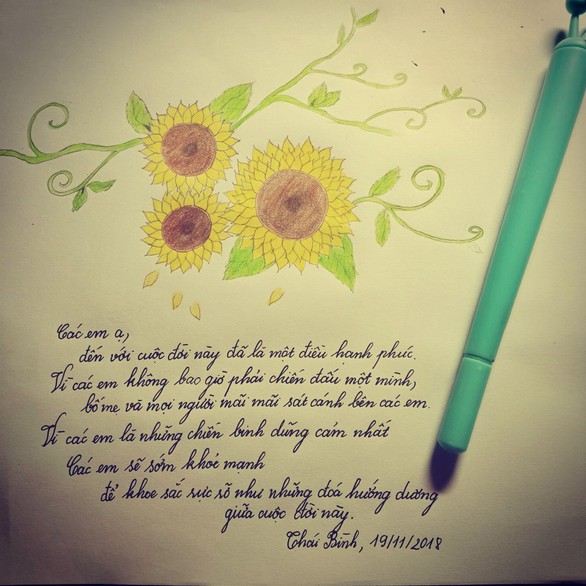 Các em ạ,
đến với cuộc đời này đã là một điều hạnh phúc.
Vì các em không bao giờ phải chiến đấu một mình,
bố mẹ và mọi người mãi mãi sát cánh bên các em.
Vì các em là những chiến binh dũng cảm nhất
Các em sẽ sớm khỏe mạnh
để khoe sắc rực rỡ như những đoá hướng dương
giữa cuộc đời này.
Thái Bình, 19/11/2018